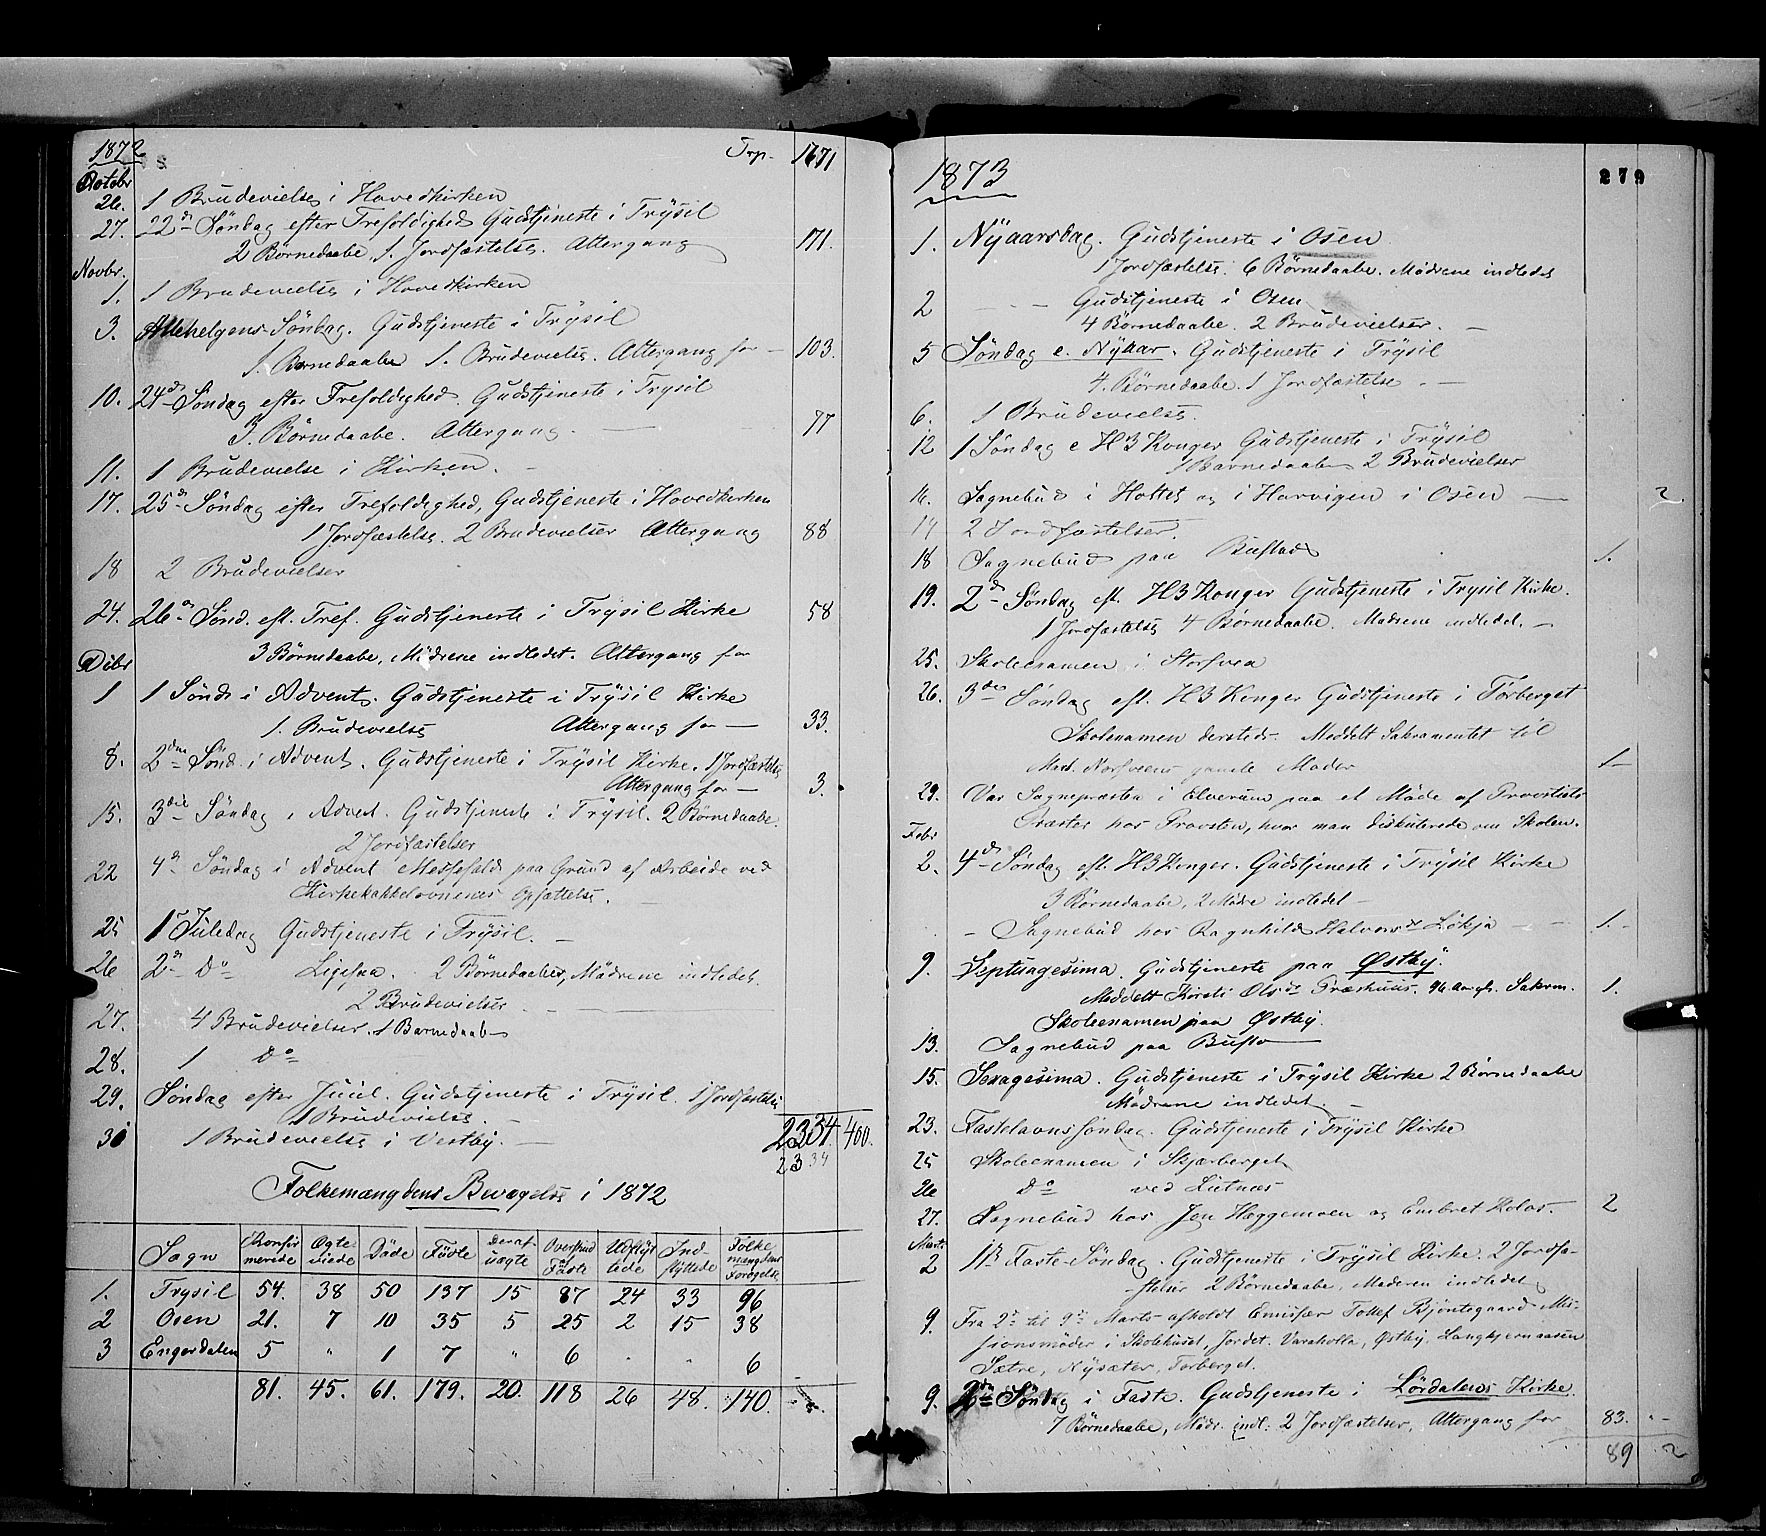 1872 Trp. 1671
Octobr
26. 1 Brudevielse i Hovedkirken
27. 22de Søndag efter Trefoldighed Gudstjeneste i Trysil
2 Børnedaabe, 1. Jordfæstelse. Altergang 171.
Novbr.
1. 1 Brudevielse i Hovedkirken
3. Allehelgens-Søndag. Gudstjeneste i Trysil
1. Barnedaabe 1. Brudevielse. Altergang for — 103.
10. 24de Søndag efter Trefoldighed. Gudstjeneste i Trysil
3. Børnedaabe. Altergang — 77
11. 1 Brudevielse i Kirken. -
17. 25de Søndag efter Trefoldighed, Gudstjeneste i Hovedkirken
1 Jordfæstelse. 2 Brudevielser Altergang 88
18 2 Brudevielser
24. 26de Sønd. eft. Tref. Gudstjeneste i Trysil Kirke 58
3 Børnedaabe, Mødrene indledet. Altergang for
Debr
1 1 Sønd i Advent. Gudstjeneste i Trysil Kirke
1. Brudevielse Altergang for — 33.
8. 2den Sønd. i Advent. Gudstjeneste i Trysil Kirke. 1 Jordfæstelse
Altergang for — 3.
15. 3die Søndag i Advent. Gudstjeneste i Trysil. 2 Børnedaabe.
2 Jordfæstelser
22 4de Søndag i Advent Messefald paa Grund af Arbeide ved
Kirkekakkelovnenes Opsættelse. —
25 1ste Juledag Gudstjeneste i Trysil. —
26 2den Do Ligesaa. 2 Børnedaabe, Mødrene indledet.
2 Brudevielser —
27. 4 Brudevielser. 1 Barnedaab —
28. 1 Do
29. Søndag efter Juul. Gudstjeneste i Trysil. 1 Jordfæstelse
1 Brudevielse. —
30 1 Brudevielse i Vestby. — 2334. 400.
2334
Folkemængdens Bevægelse i 1872
Sogn Konfirmerede Ægteviede Døde Fødte Deraf uægte Overskud Fødte Udflyttede Indflyttede Folkemængdens Forøgelse
1. Trysil 54. 38 50 137 15 87 24 33 96
2 Osen 21. 7 10 35 5 25 2 15 38
3 Engerdalen 5 " 1 7 " 6 . " 6
81. 45. 61. 179. 20. 118 26 48. 140.
1873 279
1. Nyaarsdag. Gudstjeneste i Osen
1 Jordfæstelse. 6 Børnedaabe. Mødrene indledet
2 — Gudstjeneste i Osen
4 Børnedaabe. 2 Brudevielser. —
5 Søndag e. Nyaar. Gudstjeneste i Trysil
4. Børnedaabe. 1 Jordfæstelse. —
6. 1 Brudevielse.
12 1 Søndag e H 3 Konger Gudstjeneste i Trysil
1 Barnedaab 2 Brudevielser
16. Sognebud i Holtet og i Harvigen i Osen — 2
17 2 Jordfæstelser.
18 Sognebud paa Bustad 1.
19. 2den Søndag eft. H 3 Konger Gudstjeneste i Trysil Kirke.
1 Jordfæstelse 4 Børnedaabe. Mødrene indledet. —
25. Skoleexamen i Storsvea
26. 3die Søndag eft. H 3 Konger Gudstjeneste i Tørberget
Skoleexamen dersteds. Meddelt Sakramentet til
Mart. Norsveens gamle Moder 1 —
29. Var Sognepræsten i Elverum paa et Møde af Provstiets
Præster hos Provsten, hvor man diskuterede om Skolen.
Febr
2. 4de Søndag eft. H 3 Konger. Gudstjeneste i Trysil Kirke
3 Børnedaabe, 2 Mødre indledet —
- Sognebud hos Ragnhild Halvorsdr Løkja — 1. -
9. Septuagesima. Gudstjeneste paa Østby.
Meddelt Kirsti Olsdr Præsthuus. 96 Aar gl. Sakrm. 1.
Skoleexamen paa Østby.
13. Sognebud paa Busta —
15. Sexagesima. Gudstjeneste i Trysil Kirke 2 Børnedaabe
Mødrene indledet. —
23. Fastelavnssøndag. Gudstjeneste i Trysil Kirke
25 Skoleexamen i Skjærberget
26 Do ved Lutnæs
27. Sognebud hos Jon Hæggemoen og Embret Kolos. 2
Marts
2 1ste Faste-Søndag. Gudstjeneste i Trysil Kirke. 2 Jordfæ-
stelser 2 Børnedaabe, Mødrene indledet
9. Fra 2de til 9de Marts afholdt Emissær Tollef Bjøntegaard Mis-
sionsmøder i Skolehuset, Jordet. Varaholla, Østby, Langkjernaasen
Sætre, Nysæter, Tørberget.
9. 2den Søndag i Faste. Gudstjeneste i Lørdalens Kirke.
7 Børnedaabe, Mødr. indl. 2 Jordfæstelser, Altergang for 83. -
89 2